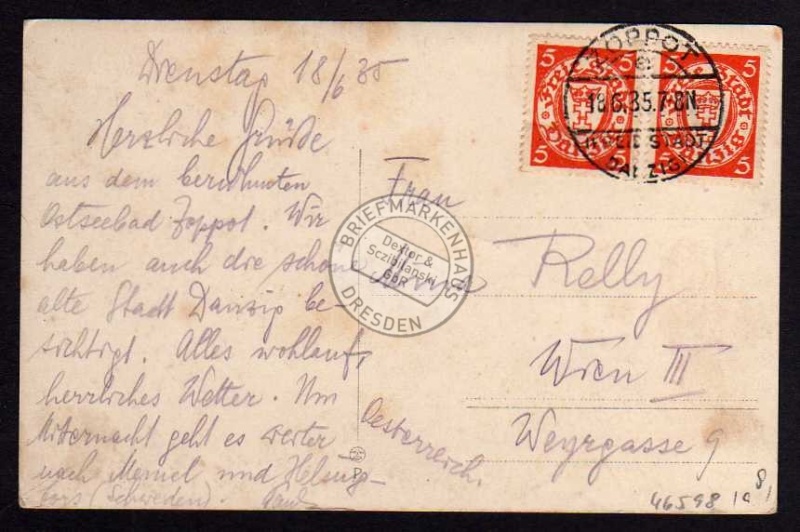 Dienstag 18/6 35
Herzliche Grüße
aus dem berühmten
Ostseebad Zoppot. Wir
haben auch die schöne
alte Stadt Danzig be-
sichtigt. Alles wohlauf,
herrliches Wetter. Um
Mitternacht geht es weiter
nach Memel und Helsing-
fors (Schweden).
Frau
Relly
Wien III
Weyrgasse 9
Oesterreich.
5 5
Freie Stadt
Danzig
5 5
5 5
ZOPPOT
e
18.6.35.7-8N
FREIE STADT
DANZIG
BRIEFMARKENHAUS
Dexter &
Sczibilanski
GbR
DRESDEN
P
46598